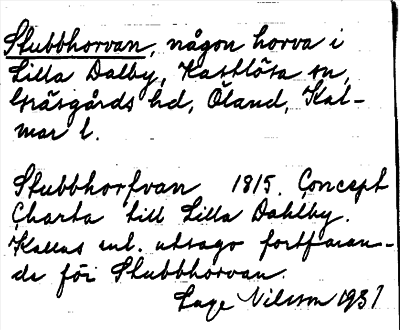 Stubbhorvan, någon horva i
Lilla Dalby, Kastlösa sn,
Gräsgårds hd, Öland, Kal-
mar l.
Stubbhorfvan 1815. Concept
Charta till Lilla Dahlby.
Kallas enl. utsago fortfaran-
de för Stubbhorvan.
Lage Nilsson 1937